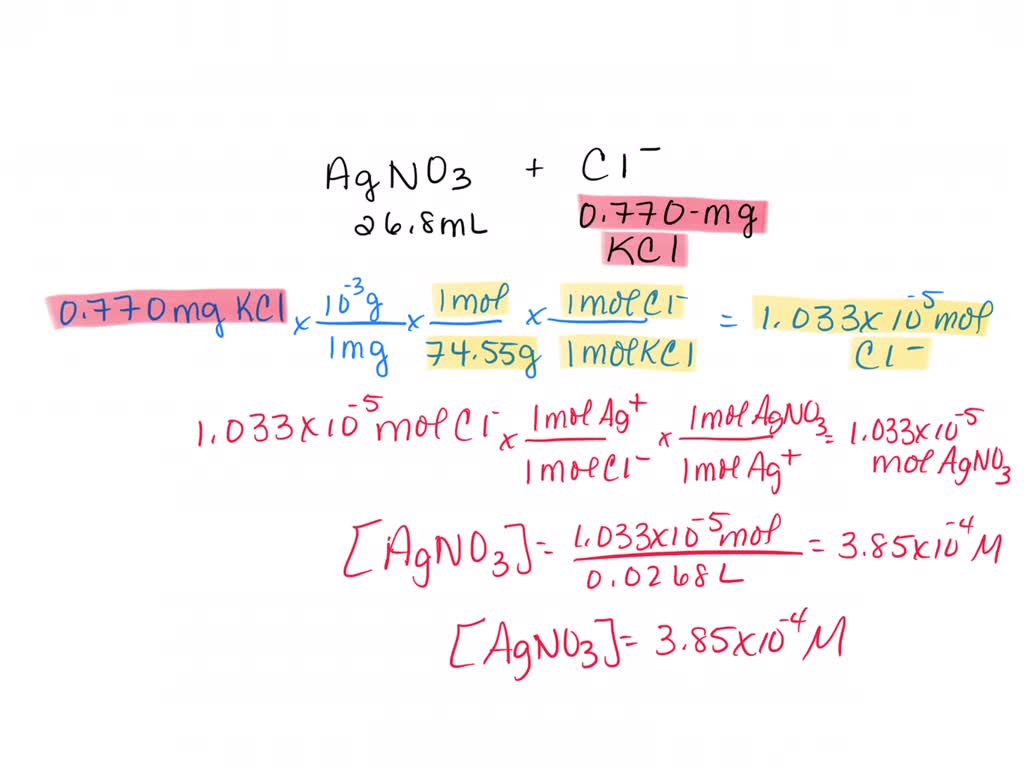 AgNO₃ + Cl⁻
26.8mL 0.770-mg
KCl
0.770mg KCl × 10⁻³g / 1mg × 1mol / 74.55g × 1molCl⁻ / 1molKCl = 1.033×10⁻⁵mol Cl⁻
1.033×10⁻⁵molCl⁻ × 1molAg⁺ / 1molCl⁻ × 1molAgNO₃ / 1molAg⁺ = 1.033×10⁻⁵ molAgNO₃
[AgNO₃] = 1.033×10⁻⁵mol / 0.0268L = 3.85×10⁻⁴M
[AgNO₃] = 3.85×10⁻⁴M